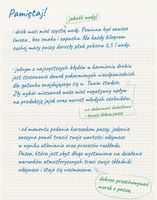 Pamiętaj!
jakość wody!
- drób musi mieć czystą wodę. Powinna być zawsze
świeża, bez smaku i zapachu. Na każdy kilogram
suchej masy paszy dorosły ptak pobiera 2,5 l wody.
- jednym z najczęstszych błędów w karmieniu drobiu
jest stosowanie dawek pokarmowych nieodpowiednich
dla gatunku znajdującego się w Twoim stadzie.
Zły wybór mieszanek może mieć negatywny wpływ
na produkcję jajek oraz wzrost młodych osobników
nie dokarmiać dodatkowo
dawać dobrą paszę
- od momentu podania karmidłem paszy, jedzenie
zaczyna powoli tracić swoje wartości odżywcze
w wyniku utleniania oraz procesów rozkładu.
Pasza, która jest zbyt długo wystawiona na działanie
warunków atmosferycznych traci swoje składniki
odżywcze i staje się niesmaczna.
dobrze przechowywać
worek z paszą